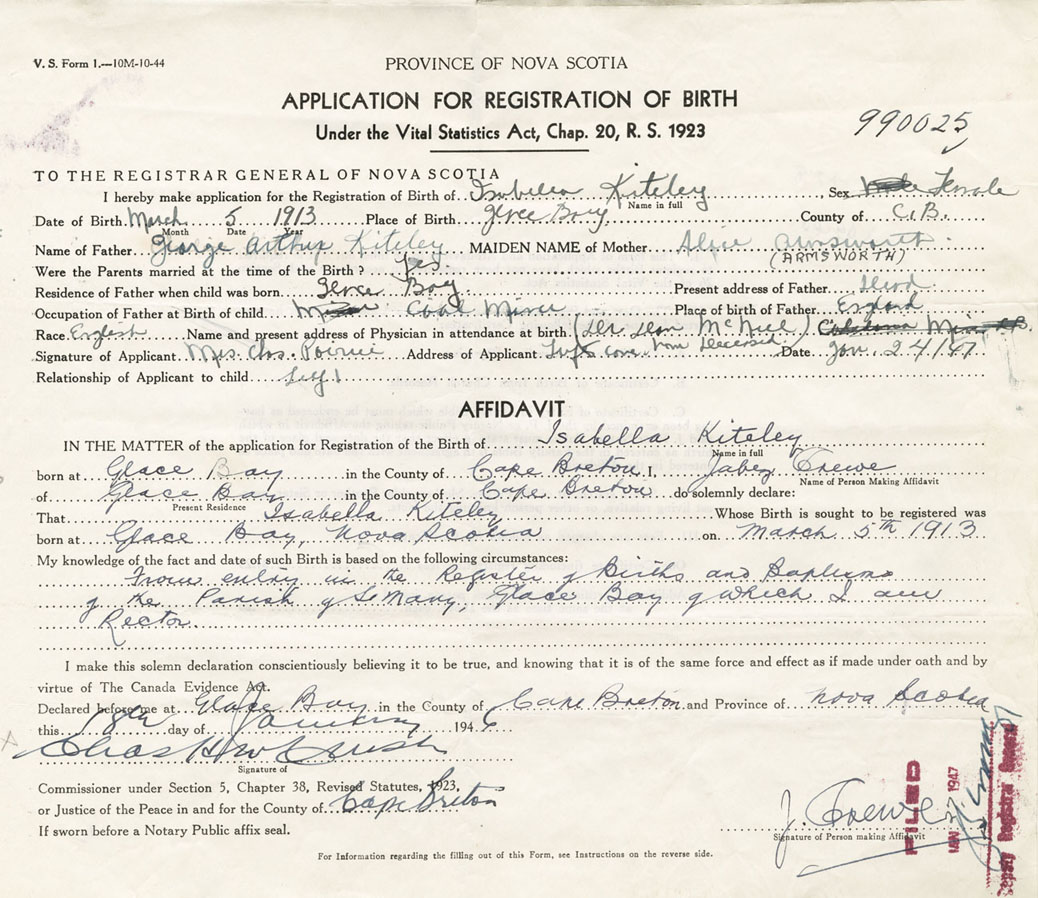 V. S. Form 1.—10M-10-44
PROVINCE OF NOVA SCOTIA
APPLICATION FOR REGISTRATION OF BIRTH
Under the Vital Statistics Act, Chap. 20, R. S. 1923
990025
TO THE REGISTRAR GENERAL OF NOVA SCOTIA
I hereby make application for the Registration of Birth of Isabella Kiteley Sex Female
Name in full
Date of Birth March 5 1913 Place of Birth Glace Bay County of C.B.
Month Date Year
Name of Father George Arthur Kiteley MAIDEN NAME of Mother Alice Armsworth
(ARMSWORTH)
Were the Parents married at the time of the Birth? yes
Residence of Father when child was born Glace Bay Present address of Father
Occupation of Father at Birth of child Coal Miner Place of birth of Father England
Race English Name and present address of Physician in attendance at birth
Signature of Applicant Mrs. Chas. Address of Applicant Date Jan. 24/47
Relationship of Applicant to child Self
AFFIDAVIT
IN THE MATTER of the application for Registration of the Birth of Isabella Kiteley
Name in full
born at Glace Bay in the County of Cape Breton I, Jabez Crewe
Name of Person Making Affidavit
of Glace Bay in the County of Cape Breton do solemnly declare:
Present Residence
That Isabella Kiteley Whose Birth is sought to be registered was
born at Glace Bay, Nova Scotia on March 5th 1913
My knowledge of the fact and date of such Birth is based on the following circumstances:
From entry in the Register of Births and Baptisms
of the Parish of St Mary, Glace Bay of which I am
Rector.
I make this solemn declaration conscientiously believing it to be true, and knowing that it is of the same force and effect as if made under oath and by
virtue of The Canada Evidence Act.
Declared before me at Glace Bay in the County of Cape Breton and Province of Nova Scotia
this 18th day of January 1946
Signature of
Commissioner under Section 5, Chapter 38, Revised Statutes, 1923,
or Justice of the Peace in and for the County of Cape Breton
If sworn before a Notary Public affix seal.
J. Crewe
Signature of Person making Affidavit
FILED
JAN 27 1947
Deputy Registrar General
For Information regarding the filling out of this Form, see Instructions on the reverse side.